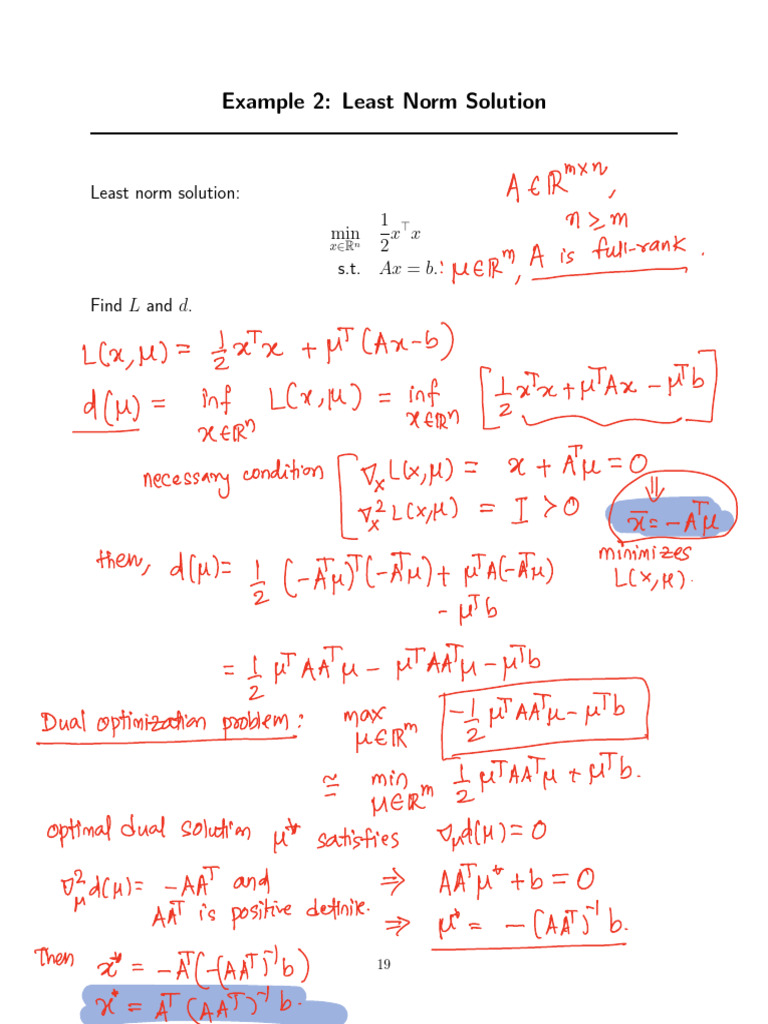 Example 2: Least Norm Solution
Least norm solution:
A ∈ ℝ^{m×n},
n ≥ m
min_{x∈ℝ^n} 1/2 x^⊤ x
s.t. Ax = b. : μ∈ℝ^m, A is full-rank.
Find L and d.
L(x,μ) = 1/2 x^T x + μ^T (Ax-b)
d(μ) = inf_{x∈ℝ^n} L(x,μ) = inf_{x∈ℝ^n} [1/2 x^T x + μ^T Ax − μ^T b]
necessary condition [ ∇_x L(x,μ) = x + A^T μ = 0
∇_x^2 L(x,μ) = I > 0
⇓
x̄ = -A^T μ
minimizes
L(x,μ).
then, d(μ) = 1/2 (-A^T μ)^T (-A^T μ) + μ^T A(-A^T μ)
- μ^T b
= 1/2 μ^T AA^T μ - μ^T AA^T μ - μ^T b
Dual optimization problem: max_{μ∈ℝ^m} -1/2 μ^T AA^T μ - μ^T b
≅ min_{μ∈ℝ^m} 1/2 μ^T AA^T μ + μ^T b.
optimal dual solution μ* satisfies ∇_μ d(μ) = 0
∇_μ^2 d(μ) = -AA^T and ⇒ AA^T μ* + b = 0
AA^T is positive definite. ⇒ μ* = -(AA^T)^{-1} b.
Then x* = -A^T(-(AA^T)^{-1} b)
19
x* = A^T (AA^T)^{-1} b.